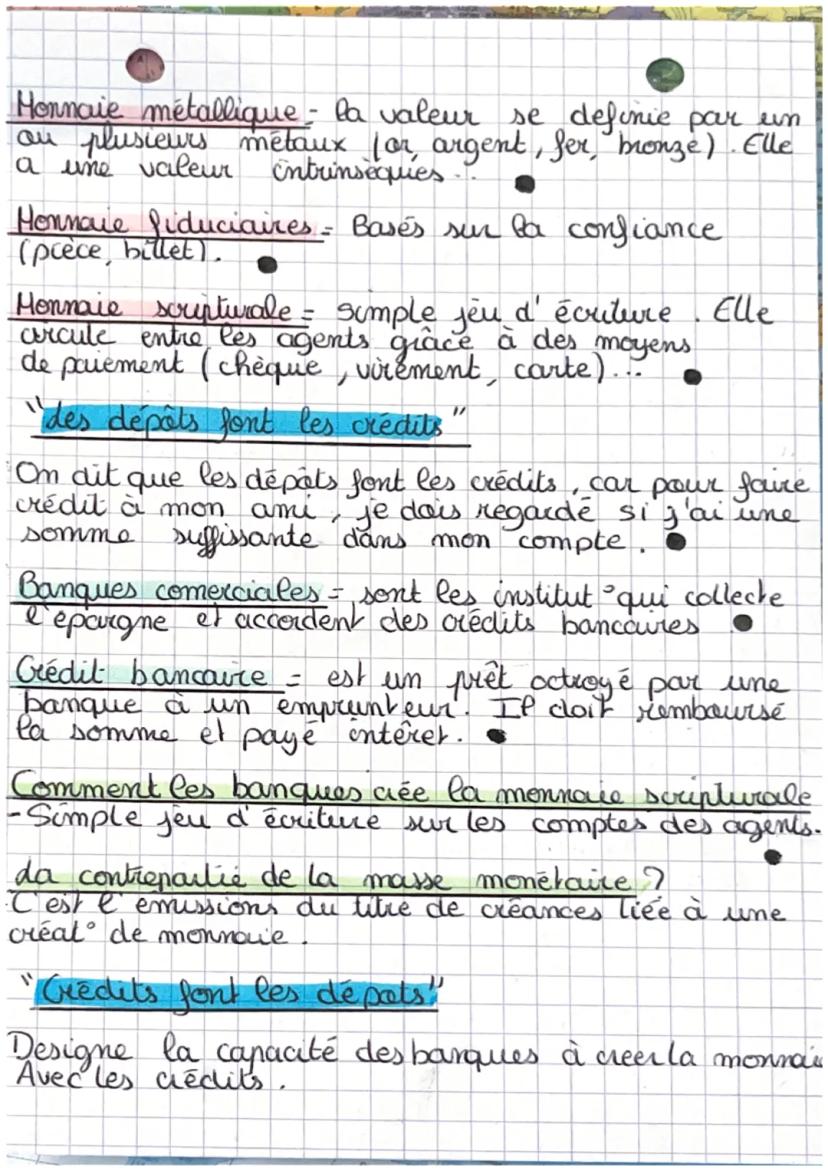 Monnaie métallique = la valeur se definie par un
ou plusieurs métaux (or, argent, fer, bronze). Elle
a une valeur intrinsèques...
Monnaie fiduciaires = Basés sur la confiance
(pièce, billet).
Monnaie scripturale = simple jeu d'écriture. Elle
circule entre les agents grâce à des moyens
de paiement (chèque, virement, carte)...
"des dépôts font les crédits"
On dit que les dépôts font les crédits, car pour faire
crédit à mon ami, je dois regardé si j'ai une
somme suffissante dans mon compte.
Banques comerciales = sont les institut° qui collecte
l'épargne et accordent des crédits bancaires
Crédit bancaire = est un prêt octroyé par une
banque à un emprunteur. Il doit remboursé
la somme et payé intêret.
Comment les banques crée la monnaie scripturale
- Simple jeu d'écriture sur les comptes des agents.
La contrepartie de la masse monétaire ?
C'est l'émissions du titre de créances liée à une
créat° de monnaie.
"Crédits font les dépots"
Designe la capacité des banques à creer la monnaie
Avec les crédits.